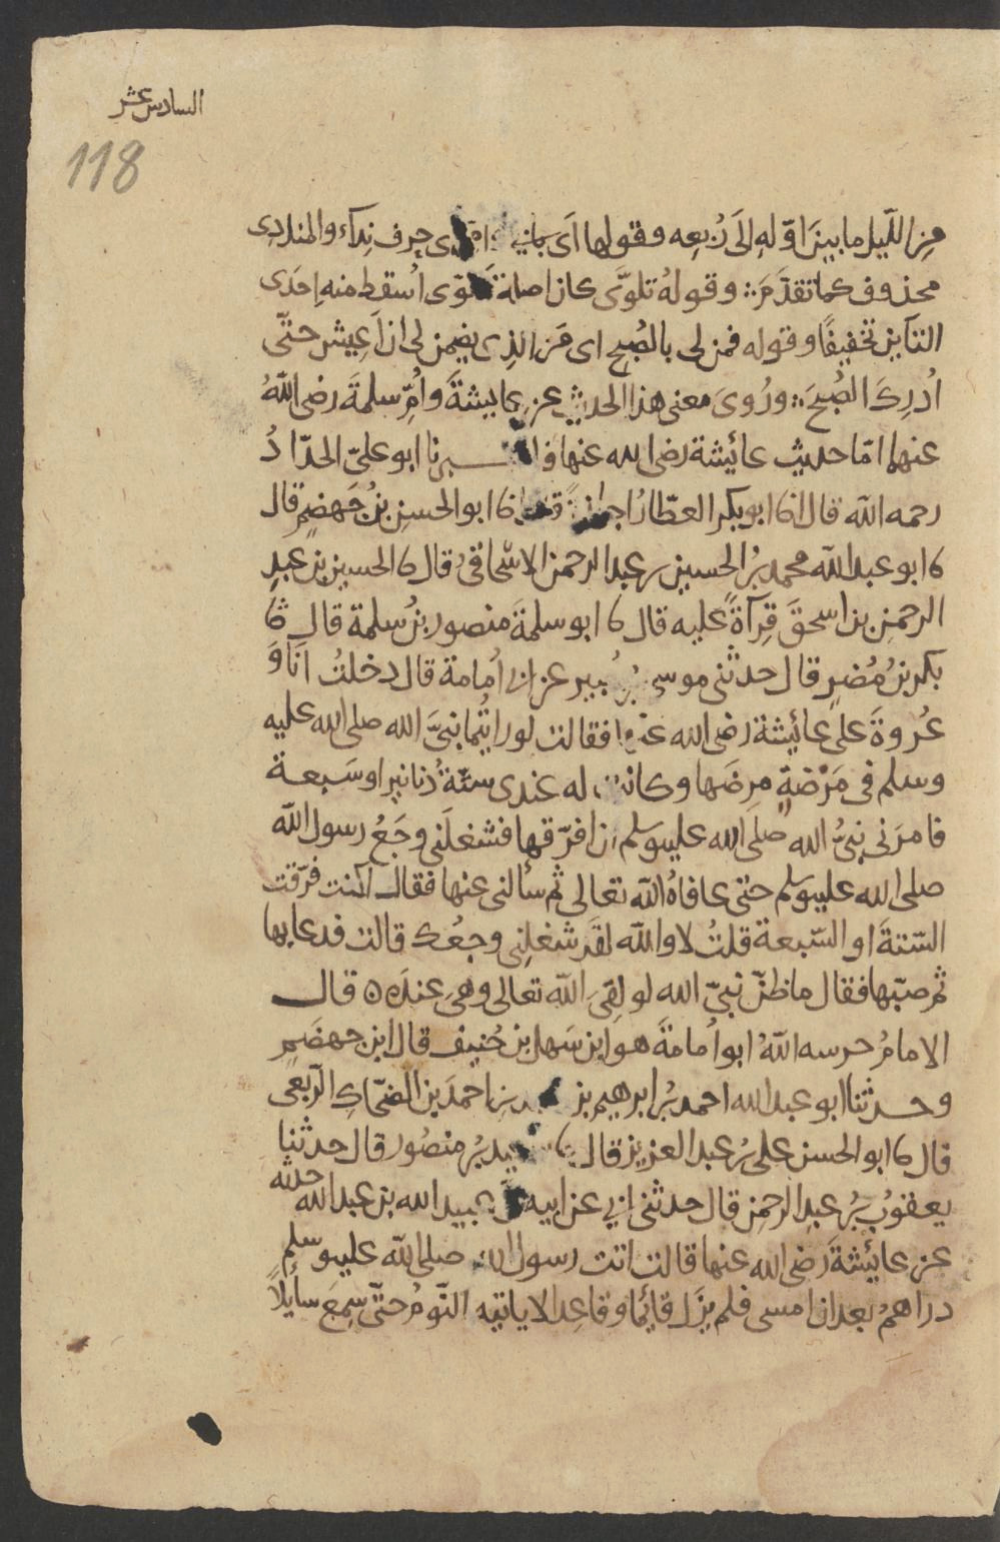 السادس عشر
118
من الليل ما بين اوّلهِ الَى رُبعِه وقولها اَى حرف نِدآء والمنادى
محذوف كما تقدَّمَ وقولهُ تلوَّى كان اصلهُ تتلوّى اُسقط منه اِحدَى
التآين تخفيفًا وقوله فمن لى بالصُبح اى مَن الذِى يضمن لى ان اَعِيش حتّى
اُدرِكَ الصُبحَ ورُوىَ معنى هذا الحديث عن عايشةَ واُمِّ سلمةَ رضى اللهُ
عنهما امّا حديث عائيشة رضى الله عنها فاخبرنا ابو علىّ الحدّادُ
رحمه الله قال انا ابو بكر العطّارُ انا ابو الحسن بنُ جَهضمٍ قال
نا ابو عبد الله محمد بنُ الحسين بن عبد الرحمن قال نا الحسين بن عبدِ
الرحمٰن بن اسحقَ قِرآةً عليه قال نا ابو سلمةَ منصور بنُ سلمة قال ثنا
بكر بنُ مُضرٍ قال حدثنى موسى بن جُبير عن ابى اُمامة قال دخلتُ انَا وَ
عُروةَ على عائيشة رضى الله عنها فقالت لو رايتُما نبىَّ الله صلى الله عليه
وسلم فى مَرْضةٍ مرِضَها وكانت له عندى ستّةُ دنانير او سَبعة
فامرَنى نبىُّ الله صلى الله عليه وسلم ان افرّقها فشغلَنى وجَعُ رسول الله
صلى الله عليه وسلم حتى عافاهُ الله تعالى ثم سألنى عنها فقال اكنت فرّقت
السّتةَ او السّبعة قلتُ لا والله لقد شغلنِى وجعُك قالت فدعا بها
ثم صبّها فقال ما ظنّ نبىّ الله لو لقِىَ الله تعالى وهى عندَه ٥ قال
الامامُ حرسه اللهُ ابو اُمامةَ هو ابن سَهل بن حُنيف قال ابن جهضَمٍ
وحدثنا ابو عبد الله احمد بنُ ابرهيم بن بن احمدَ بن الضحّاكِ الرّبعى
قال نا ابو الحسن على بنُ عبد العزيز قال نا سعيد بنُ منصُور قال حدثنا
يعقوبُ بنُ عبدِ الرحمن قال حدثنى ابى عن ابيه عن عبيد الله بن عبد الله حدثه
عن عايئشةَ رضى الله عنها قالت اتت رسول الله صلى الله عليه وسلم
دراهمُ بعد ان امسى فلم يزَل قائِما وقاعِدا لا ياتيه النّومُ حتّى سِمعَ سآيلاً